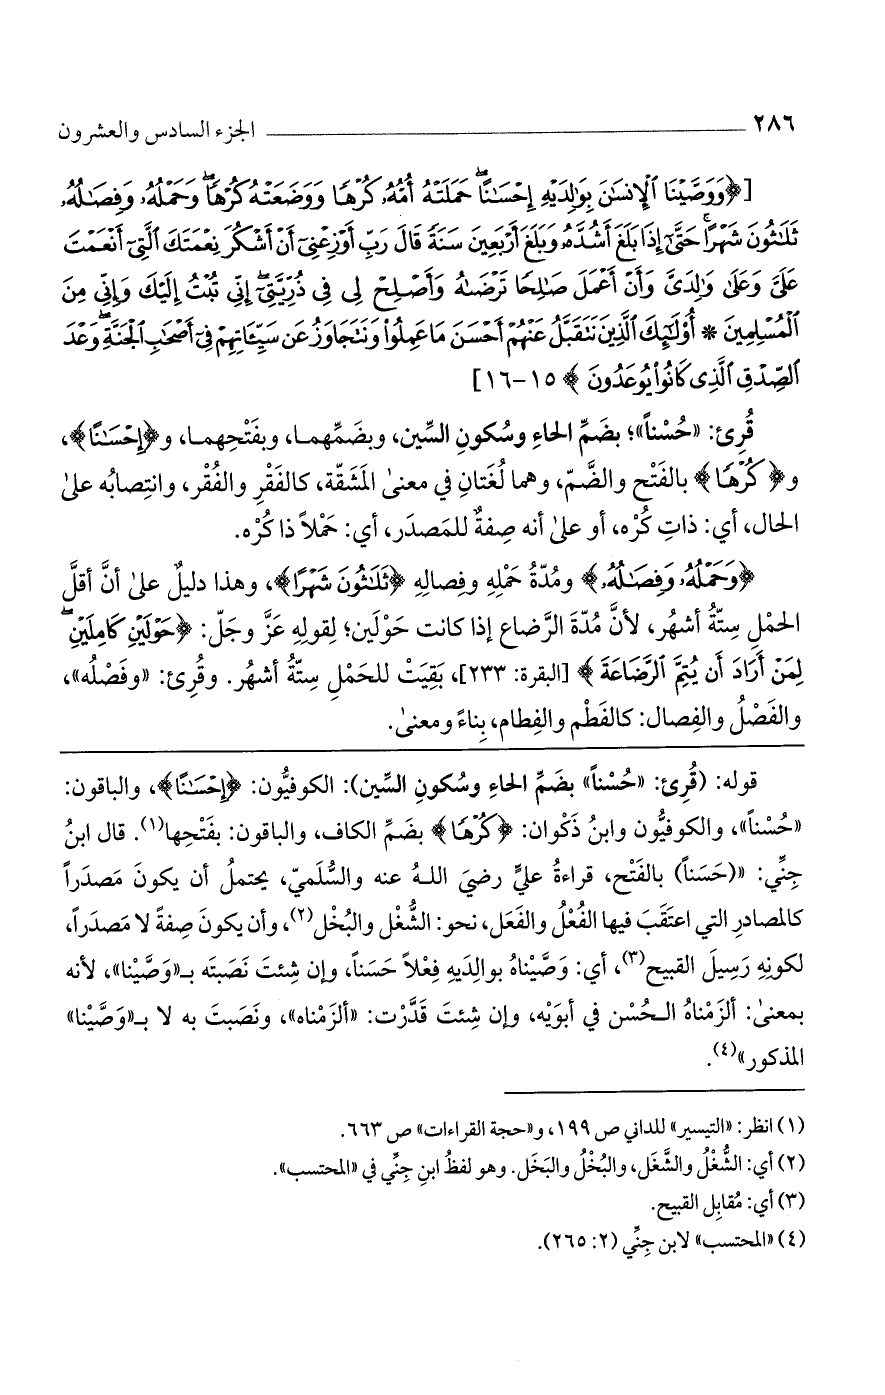 ٢٨٦ ــــــــــــــــــــــــــــــــ الجزء السادس والعشرون
[﴿وَوَصَّيْنَا ٱلْإِنسَٰنَ بِوَٰلِدَيْهِ إِحْسَٰنًا ۖ حَمَلَتْهُ أُمُّهُۥ كُرْهًا وَوَضَعَتْهُ كُرْهًا ۖ وَحَمْلُهُۥ وَفِصَٰلُهُۥ
ثَلَٰثُونَ شَهْرًا ۚ حَتَّىٰٓ إِذَا بَلَغَ أَشُدَّهُۥ وَبَلَغَ أَرْبَعِينَ سَنَةً قَالَ رَبِّ أَوْزِعْنِىٓ أَنْ أَشْكُرَ نِعْمَتَكَ ٱلَّتِىٓ أَنْعَمْتَ
عَلَىَّ وَعَلَىٰ وَٰلِدَىَّ وَأَنْ أَعْمَلَ صَٰلِحًا تَرْضَىٰهُ وَأَصْلِحْ لِى فِى ذُرِّيَّتِىٓ ۖ إِنِّى تُبْتُ إِلَيْكَ وَإِنِّى مِنَ
ٱلْمُسْلِمِينَ * أُو۟لَٰٓئِكَ ٱلَّذِينَ نَتَقَبَّلُ عَنْهُمْ أَحْسَنَ مَا عَمِلُوا۟ وَنَتَجَاوَزُ عَن سَيِّـَٔاتِهِمْ فِىٓ أَصْحَٰبِ ٱلْجَنَّةِ ۖ وَعْدَ
ٱلصِّدْقِ ٱلَّذِى كَانُوا۟ يُوعَدُونَ﴾ ١٥-١٦]
قُرِئ: «حُسْناً»؛ بضَمِّ الحاءِ وسُكونِ السِّين، وبضَمِّهما، وبفَتْحِهما، و﴿إِحْسَٰنًا﴾،
و﴿كُرْهًا﴾ بالفَتْح والضَّمّ، وهما لُغَتانِ في معنىٰ المَشقّة، كالفَقْرِ والفُقْر، وانتِصابُه علىٰ
الحال، أي: ذاتِ كُرْه، أو علىٰ أنه صِفةٌ للمَصدَر، أي: حَمْلاً ذا كُرْه.
﴿وَحَمْلُهُۥ وَفِصَٰلُهُۥ﴾ ومُدّةُ حَمْلِهِ وفِصالِهِ ﴿ثَلَٰثُونَ شَهْرًا﴾، وهذا دليلٌ علىٰ أنَّ أقلَّ
الحمْلِ سِتّةُ أشهُر، لأنَّ مُدّةَ الرَّضاع إذا كانت حَوْلَين؛ لِقولِهِ عَزَّ وجَلّ: ﴿حَوْلَيْنِ كَامِلَيْنِ ۖ
لِمَنْ أَرَادَ أَن يُتِمَّ ٱلرَّضَاعَةَ﴾ [البقرة: ٢٣٣]، بَقِيَتْ للحَمْلِ سِتّةُ أشهُر. وقُرِئ: «وفَصْلُه»،
والفَصْلُ والفِصال: كالفَطْمِ والفِطام، بِناءً ومعنىٰ.
قوله: (قُرِئ: «حُسْناً» بضَمِّ الحاءِ وسُكونِ السِّين): الكوفيُّون: ﴿إِحْسَٰنًا﴾، والباقون:
«حُسْناً»، والكوفيُّون وابنُ ذَكْوان: ﴿كُرْهًا﴾ بضَمِّ الكاف، والباقون: بفَتْحِها(١). قال ابنُ
جِنِّي: «(حَسَناً) بالفَتْح، قراءةُ عليٍّ رضيَ اللهُ عنه والسُّلَميّ، يحتملُ أن يكونَ مَصدَراً
كالمصادرِ التي اعتَقَبَ فيها الفُعْلُ والفَعَل، نحو: الشُّغْل والبُخْل(٢)، وأن يكونَ صِفةً لا مَصدَراً،
لكونِهِ رَسِيلَ القبيح(٣)، أي: وَصَّيْناهُ بوالِدَيهِ فِعْلاً حَسَناً، وإن شِئتَ نَصَبتَه بـ«وَصَّيْنا»، لأنه
بمعنىٰ: ألزَمْناهُ الـحُسْن في أبوَيْه، وإن شِئتَ قَدَّرْت: «ألزَمْناه»، ونَصَبتَ به لا بـ«وَصَّيْنا»
المذكور»(٤).
(١) انظر: «التيسير» للداني ص ١٩٩، و«حجة القراءات» ص ٦٦٣.
(٢) أي: الشُّغْلُ والشَّغَل، والبُخْلُ والبَخَل. وهو لفظُ ابنِ جِنِّي في «المحتسب».
(٣) أي: مُقابِل القبيح.
(٤) «المحتسب» لابن جِنِّي (٢: ٢٦٥).